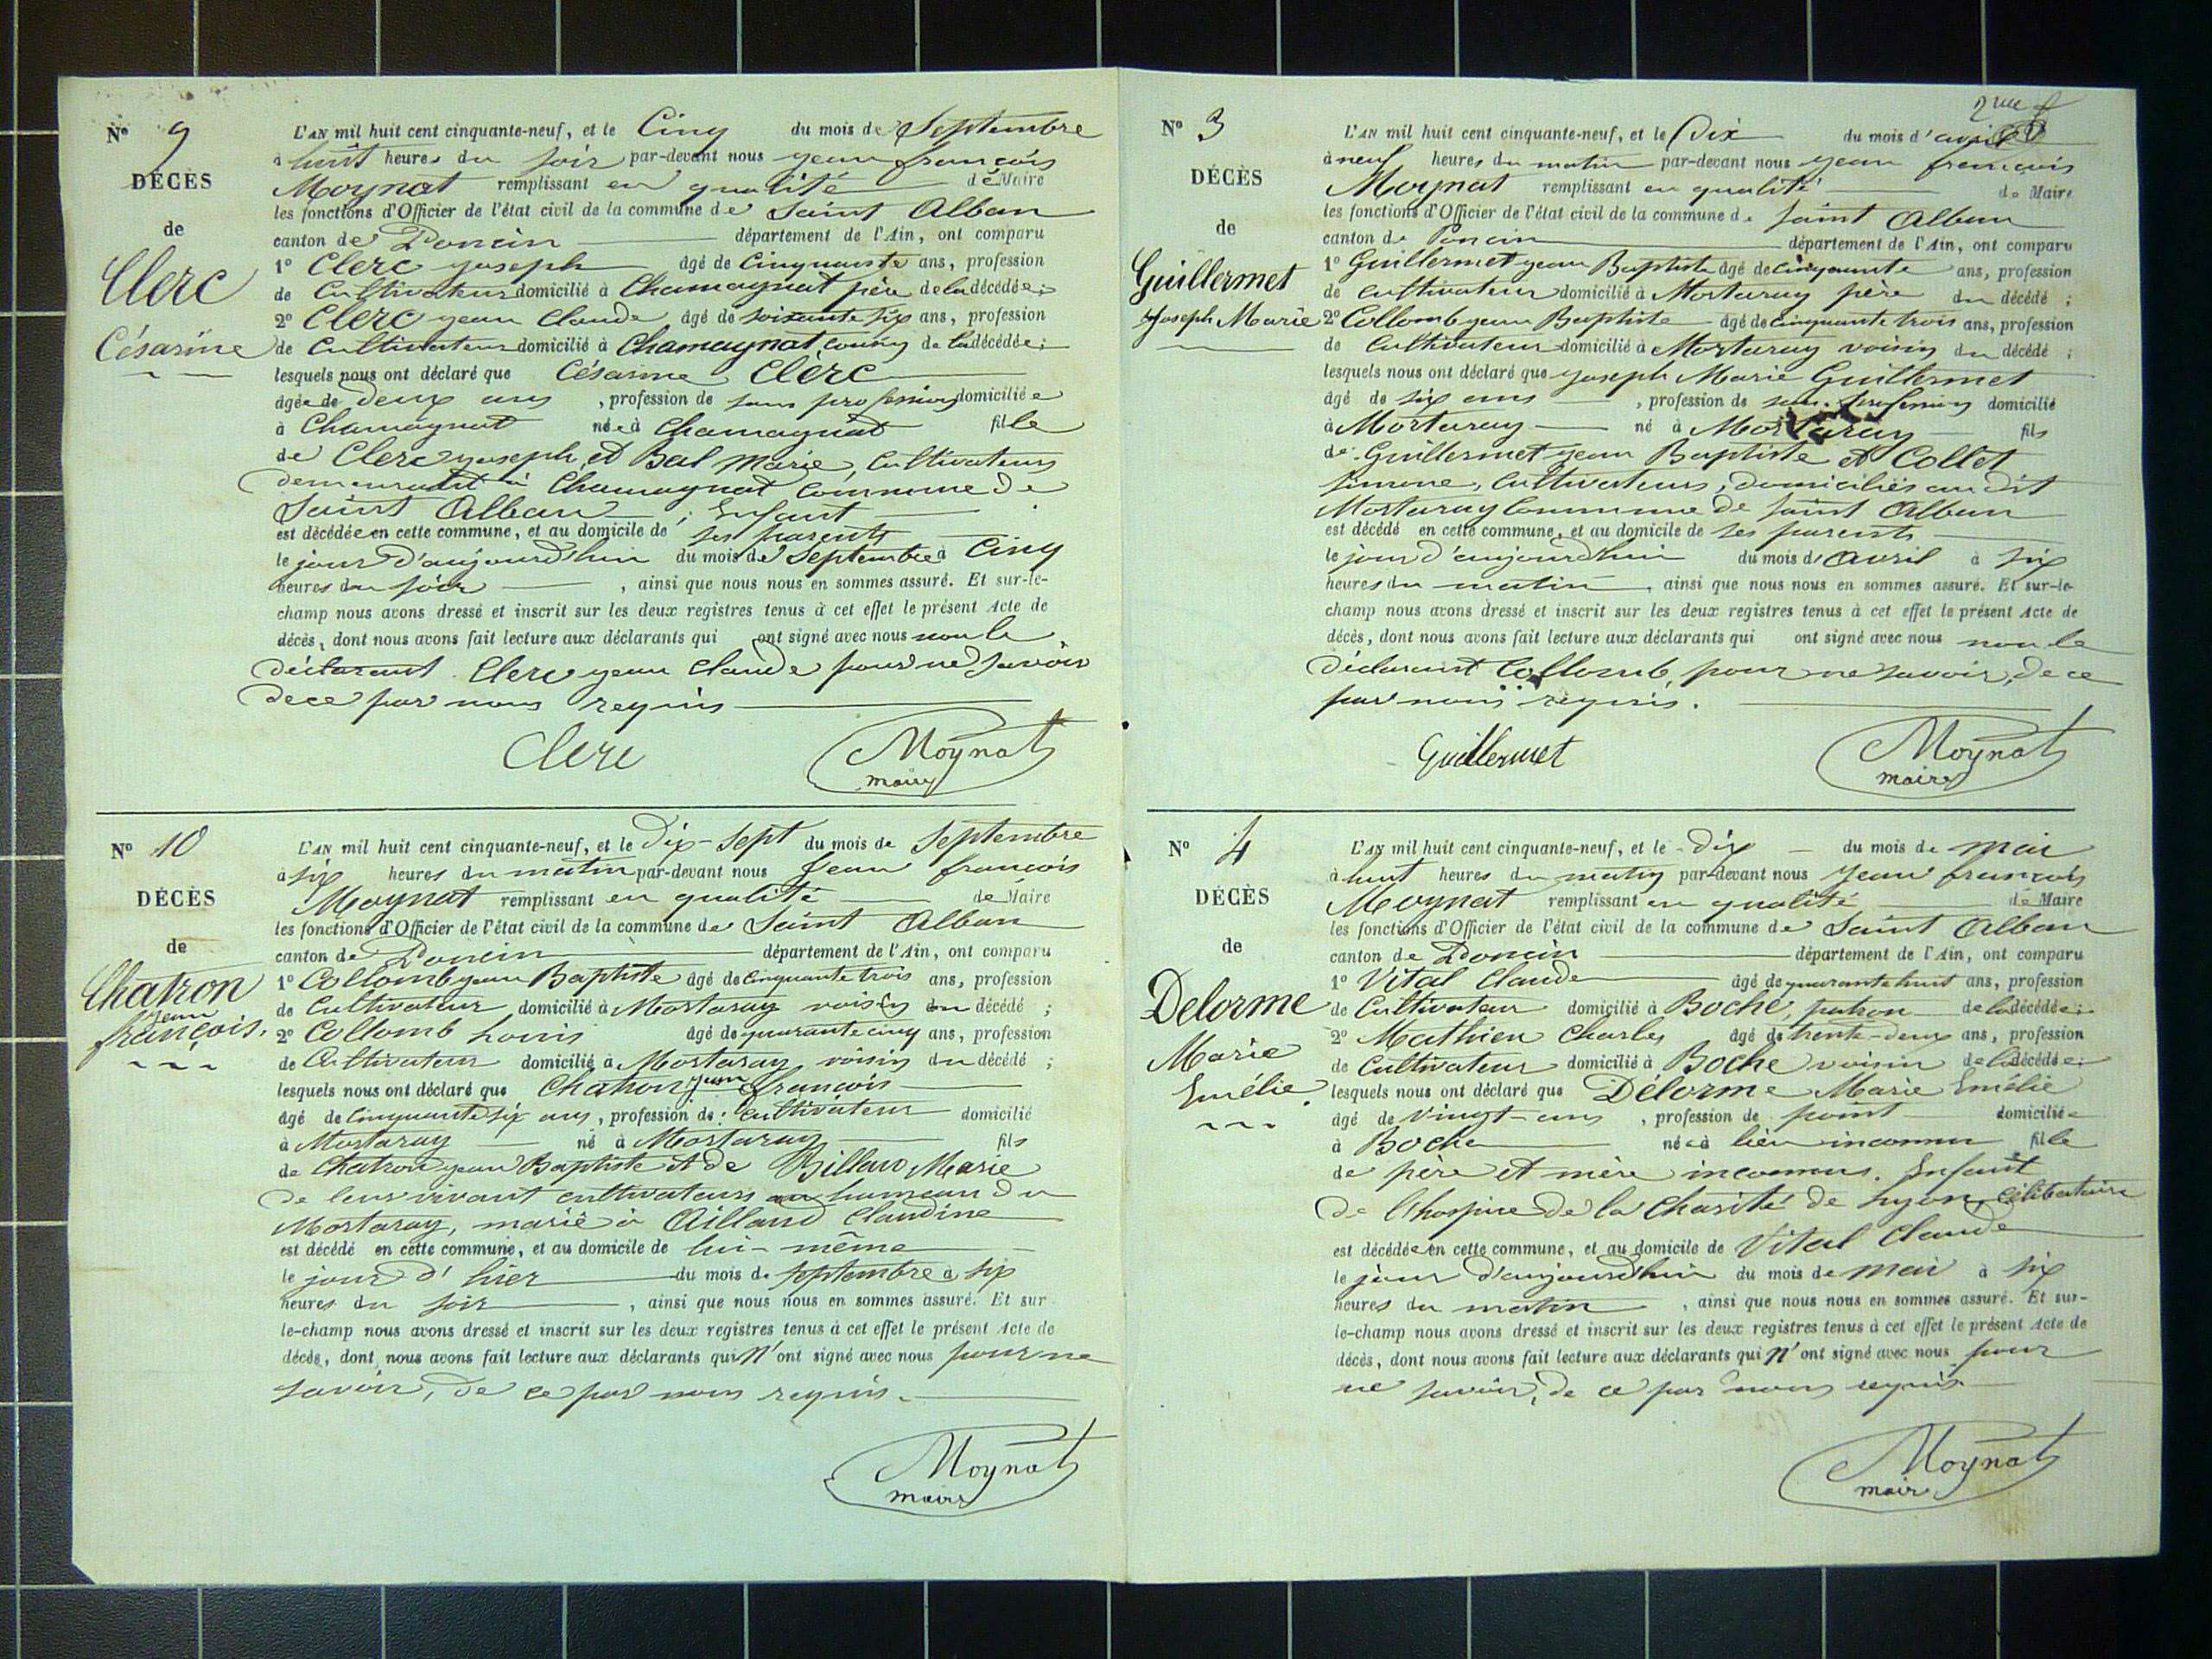 N° 9
DÉCÈS
de
Clerc
Césarine
L'AN mil huit cent cinquante-neuf, et le Cinq du mois de Septembre
à huit heures du soir par-devant nous jean françois
Moynat remplissant en qualité de Maire
les fonctions d'Officier de l'état civil de la commune de Saint Alban
canton de Poncin département de l'Ain, ont comparu
1° Clerc joseph âgé de Cinquante ans, profession
de Cultivateur domicilié à Chamagnat père de la décédée ;
2° Clerc jean Claude âgé de soixante six ans, profession
de Cultivateur domicilié à Chamagnat cousin de la décédée ;
lesquels nous ont déclaré que Césarine Clerc
âgée de deux ans , profession de sans profession domiciliée
à Chamagnat née à Chamagnat fille
de Clerc joseph et Bal Marie, Cultivateurs
demeurant à Chamagnat Commune de
Saint Alban ; Enfant
est décédée en cette commune, et au domicile de ses parents
le jour d'aujourd'hui du mois de Septembre à Cinq
heures du soir , ainsi que nous nous en sommes assuré. Et sur-le-
champ nous avons dressé et inscrit sur les deux registres tenus à cet effet le présent Acte de
décès, dont nous avons fait lecture aux déclarants qui ont signé avec nous non le
déclarant Clerc jean Claude pour ne savoir
de ce par nous requis
Clerc Moynat
maire
N° 10
DÉCÈS
de
Chatron
jean
françois.
L'AN mil huit cent cinquante-neuf, et le Dix-Sept du mois de Septembre
à six heures du matin par-devant nous Jean françois
Moynat remplissant en qualité de Maire
les fonctions d'Officier de l'état civil de la commune de Saint Alban
canton de Poncin département de l'Ain, ont comparu
1° Collomb jean Baptiste âgé de Cinquante trois ans, profession
de Cultivateur domicilié à Mortaray voisin du décédé ;
2° Collomb Louis âgé de quarante cinq ans, profession
de Cultivateur domicilié à Mortaray voisin du décédé ;
lesquels nous ont déclaré que Chatron jean françois
âgé de Cinquante six ans, profession de : Cultivateur domicilié
à Mortaray né à Mortaray fils
de Chatron jean Baptiste et de Billaud Marie
de leur vivant cultivateurs au hameau du
Mortaray, marié à Aillaud Claudine
est décédé en cette commune, et au domicile de lui-même
le jour d'hier du mois de septembre à six
heures du soir , ainsi que nous nous en sommes assuré. Et sur
le-champ nous avons dressé et inscrit sur les deux registres tenus à cet effet le présent Acte de
décès, dont nous avons fait lecture aux déclarants qui n'ont signé avec nous pour ne
savoir, de ce par nous requis.
Moynat
maire
N° 3
DÉCÈS
de
Guillermet
Joseph Marie
L'AN mil huit cent cinquante-neuf, et le Dix du mois d'avril
à neuf heures du matin par-devant nous jean francois
Moynat remplissant en qualité de Maire
les fonctions d'Officier de l'état civil de la commune de Saint Alban
canton de Poncin département de l'Ain, ont comparu
1° Guillermet jean Baptiste âgé de cinquante ans, profession
de cultivateur domicilié à Mortaray père du décédé ;
2° Collomb jean Baptiste âgé de cinquante trois ans, profession
de Cultivateur domicilié à Mortaray voisin du décédé ;
lesquels nous ont déclaré que joseph Marie Guillermet
âgé de six ans , profession de sans profession domicilié
à Mortaray né à Mortaray fils
de Guillermet jean Baptiste et Collet
Simone, Cultivateurs, domiciliés au dit
Mortaray Commune de Saint Alban
est décédé en cette commune, et au domicile de ses parents
le jour d'aujourd'hui du mois d'avril à six
heures du matin , ainsi que nous nous en sommes assuré. Et sur-le-
champ nous avons dressé et inscrit sur les deux registres tenus à cet effet le présent Acte de
décès, dont nous avons fait lecture aux déclarants qui ont signé avec nous non le
déclarant Collomb, pour ne savoir, de ce
par nous requis.
Guillermet Moynat
maire
N° 4
DÉCÈS
de
Delorme
Marie
Emélie.
L'AN mil huit cent cinquante-neuf, et le dix du mois de mai
à huit heures du matin par-devant nous Jean francois
Moynat remplissant en qualité de Maire
les fonctions d'Officier de l'état civil de la commune de Saint Alban
canton de Poncin département de l'Ain, ont comparu
1° Vital Claude âgé de quarante huit ans, profession
de Cultivateur domicilié à Boche, patron de la décédée ;
2° Mathieu Charles âgé de trente-deux ans, profession
de Cultivateur domicilié à Boche voisin de la décédée ;
lesquels nous ont déclaré que Délorme Marie Emélie
âgé de Vingt-ans , profession de point domiciliée
à Boche née à lieu inconnu fille
de père et mère inconnus. Enfant
de l'hospice de la Charité de Lyon, Célibataire
est décédée en cette commune, et au domicile de Vital Claude
le jour d'aujourd'hui du mois de mai à six
heures du matin , ainsi que nous nous en sommes assuré. Et sur-
le-champ nous avons dressé et inscrit sur les deux registres tenus à cet effet le présent Acte de
décès, dont nous avons fait lecture aux déclarants qui n'ont signé avec nous pour
ne savoir, de ce par nous requis
Moynat
maire